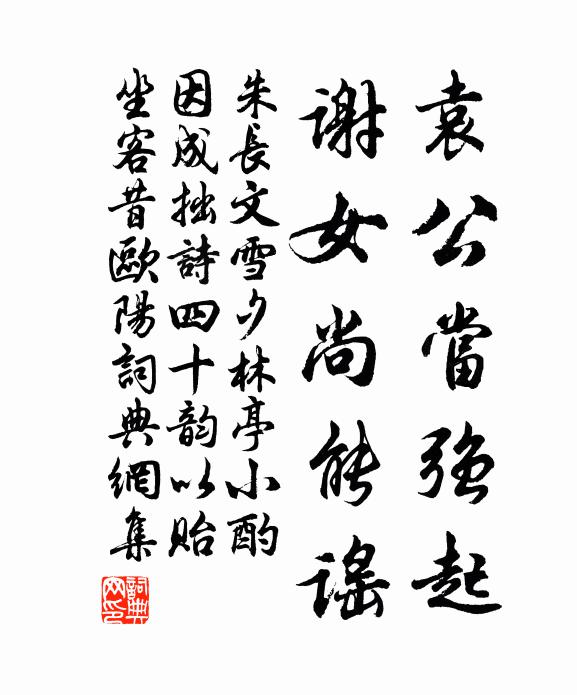 袁公當強起
謝女尚能謠
朱長文雪夕林亭小酌
因成拙詩四十韵以貽
坐客昔歐陽詞典網集
詞典
网印